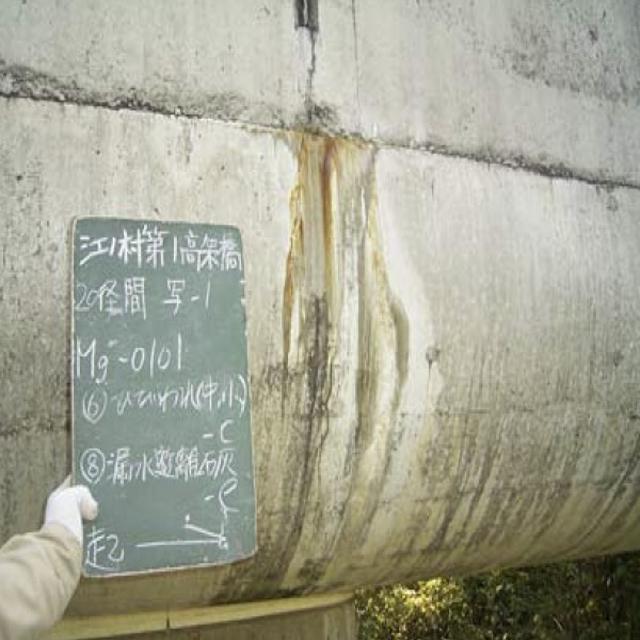 江川村第1高架橋
20径間 写-1
Mg-0101
⑥ひびわれ(中,小)
-C
⑧漏水遊離石灰
-e
起2